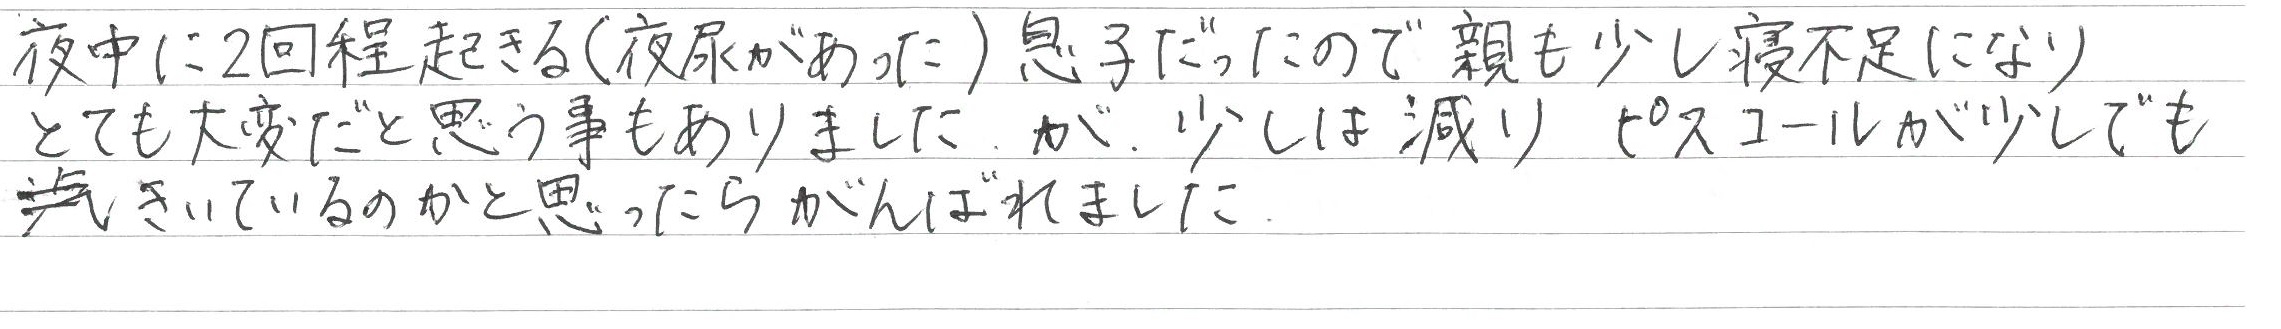 夜中に2回程起きる(夜尿があった)息子だったので親も少し寝不足になり
とても大変だと思う事もありました.が.少しは減り ピスコールが少しでも
きいているのかと思ったらがんばれました.